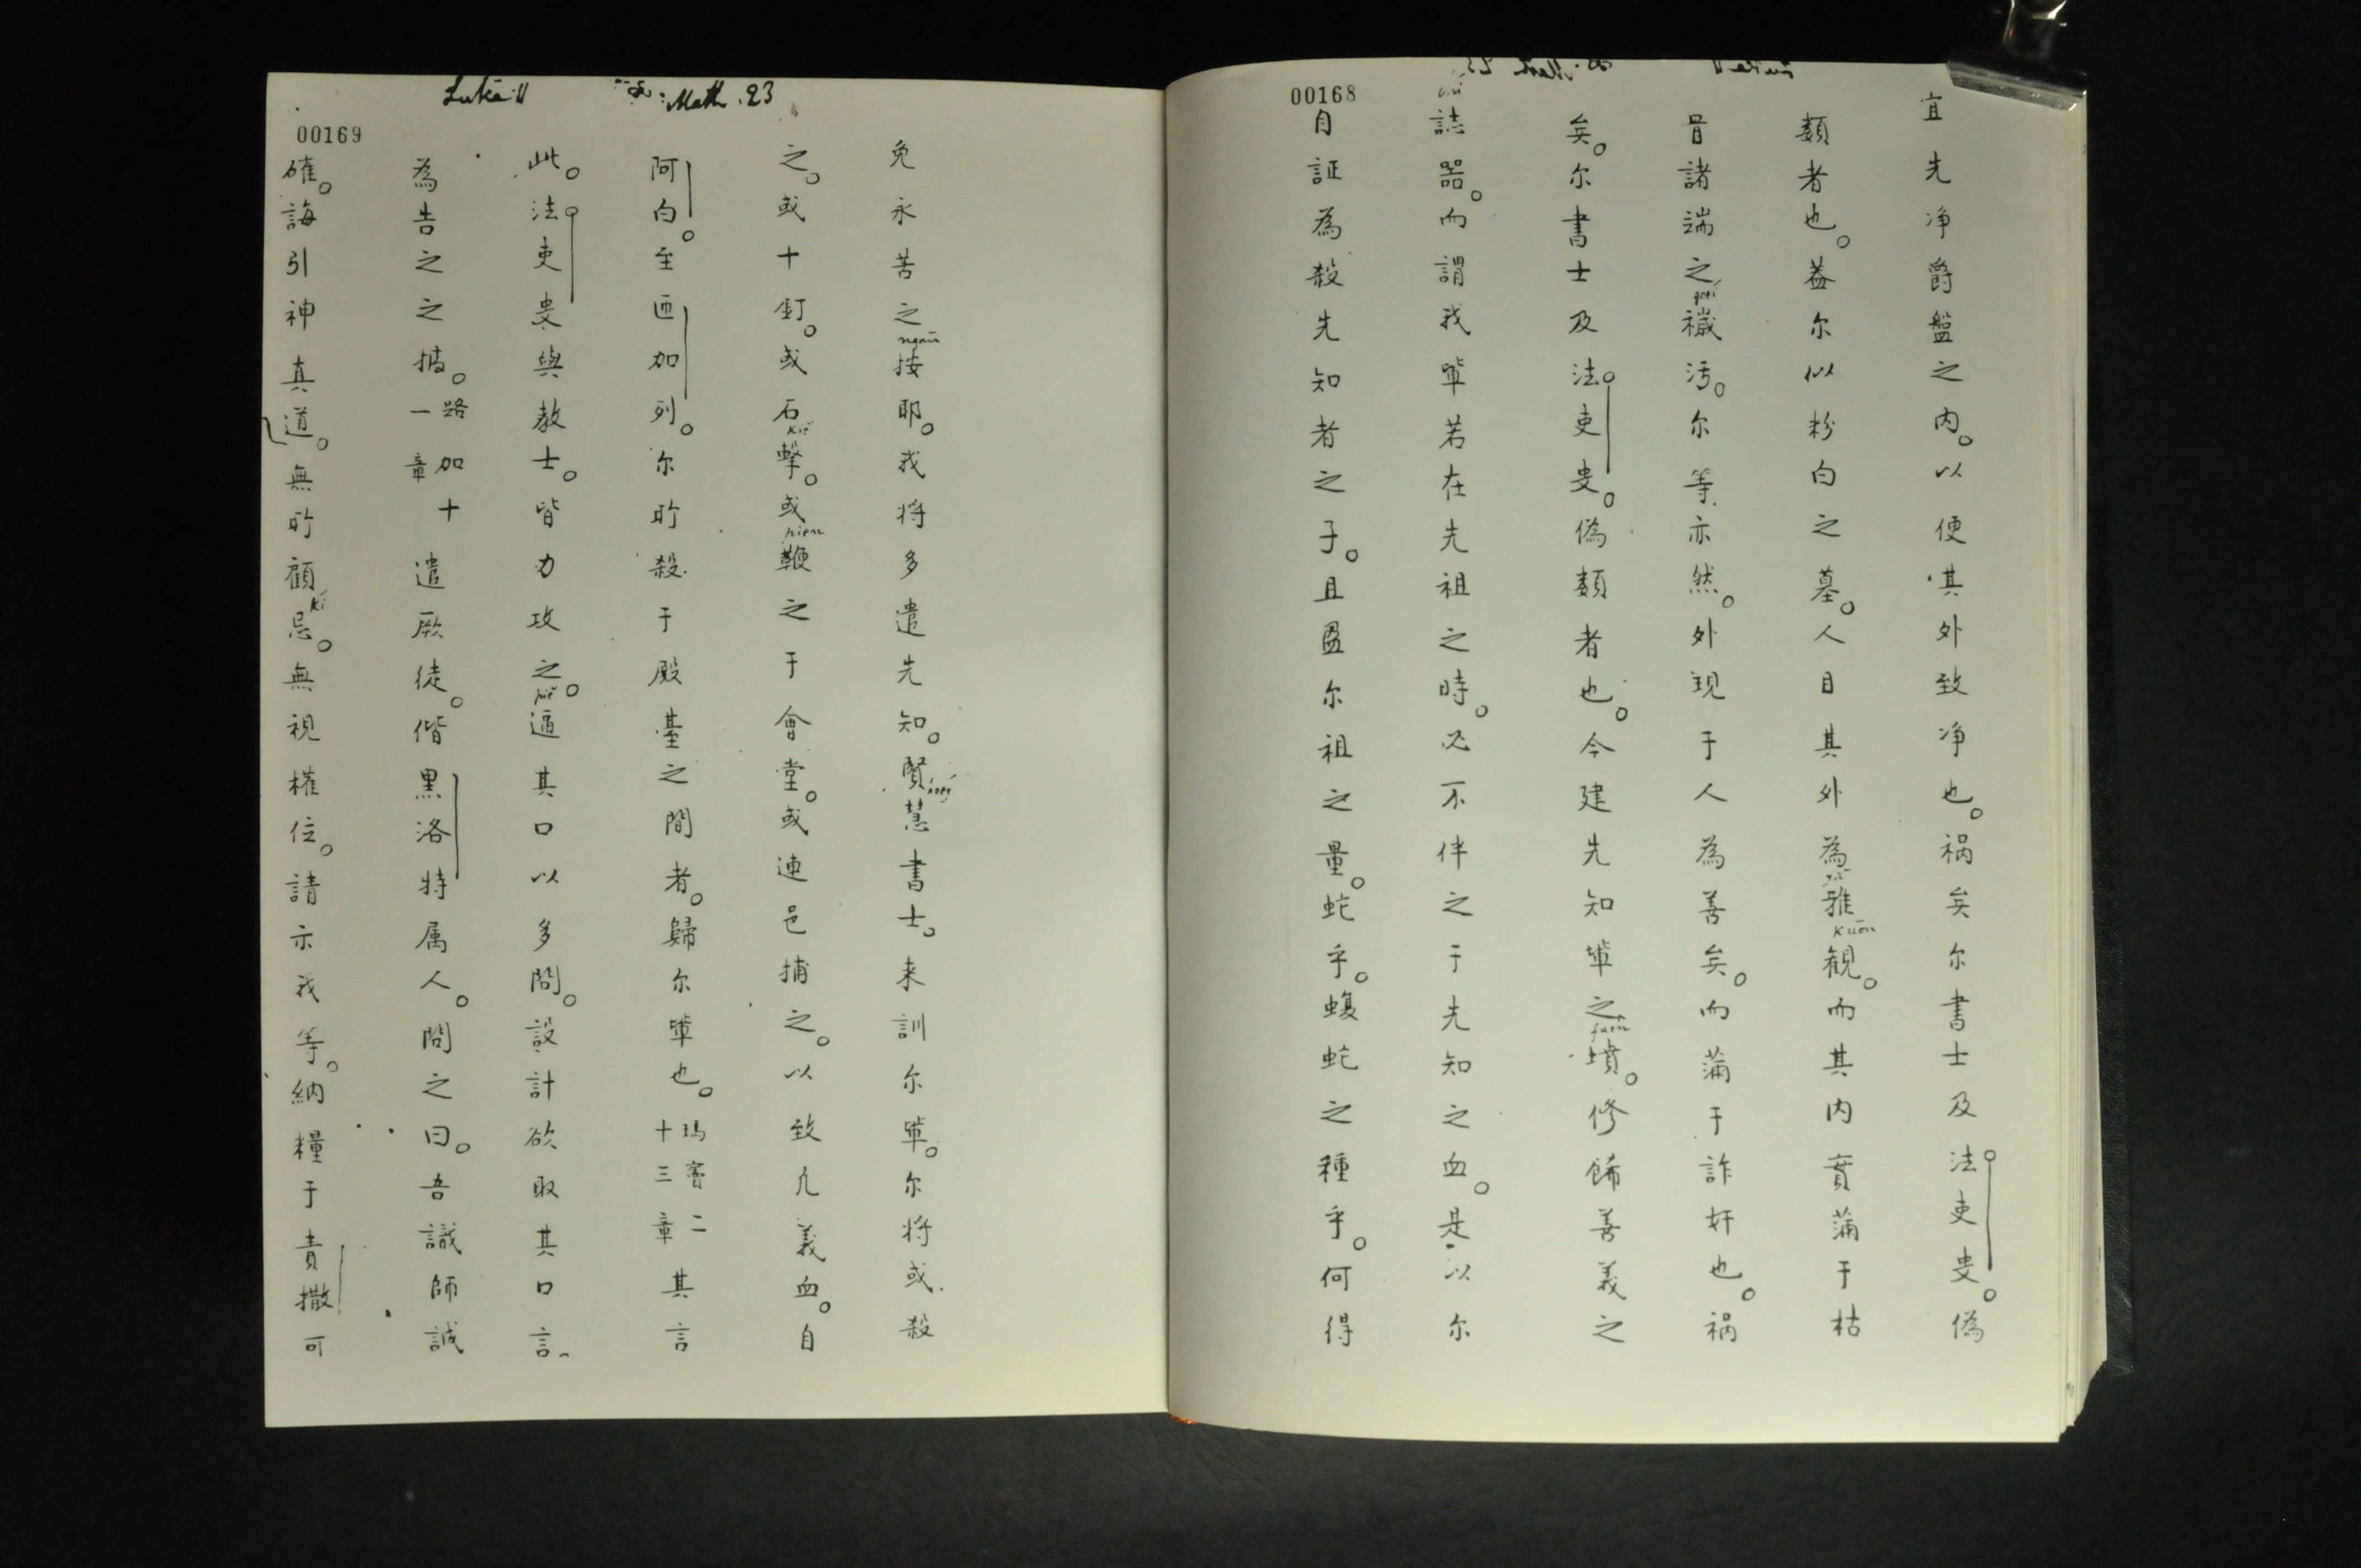 00168
宜先净爵盤之内。以便其外致净也。祸矣尔書士及法吏叟。偽
類者也。蓋尔以粉白之墓。人目其外為雅觀。而其内實滿于枯
骨諸端之穢污。尔等亦然。外現于人為善矣。而滿于詐奸也。祸
矣。尔書士及法吏叟。偽類者也。今建先知軰之墳。修餙善義之
誌器。而謂我軰若在先祖之時。必不伴之于先知之血。是以尔
自証為殺先知者之子。且盈尔祖之量。蛇乎。蝮蛇之種乎。何得
Luke 11 & Math. 23
00169
免永苦之按耶。我将多遣先知。賢慧書士。来訓尔軰。尔将或殺
之。或十釘。或石擊。或鞭之于會堂。或連邑捕之。以致凢義血。自
阿白。至匝加列。尔所殺于殿臺之間者。歸尔軰也。瑪竇二十三章其言
此。法吏叟與教士。皆力攻之。逼其口以多問。設計欲取其口言。
為告之之據。路加十一章遣厥徒。偕黑洛特属人。問之曰。吾識師誠
確。誨引神真道。無所顧忌。無視權位。請示我等。納糧于責撒可